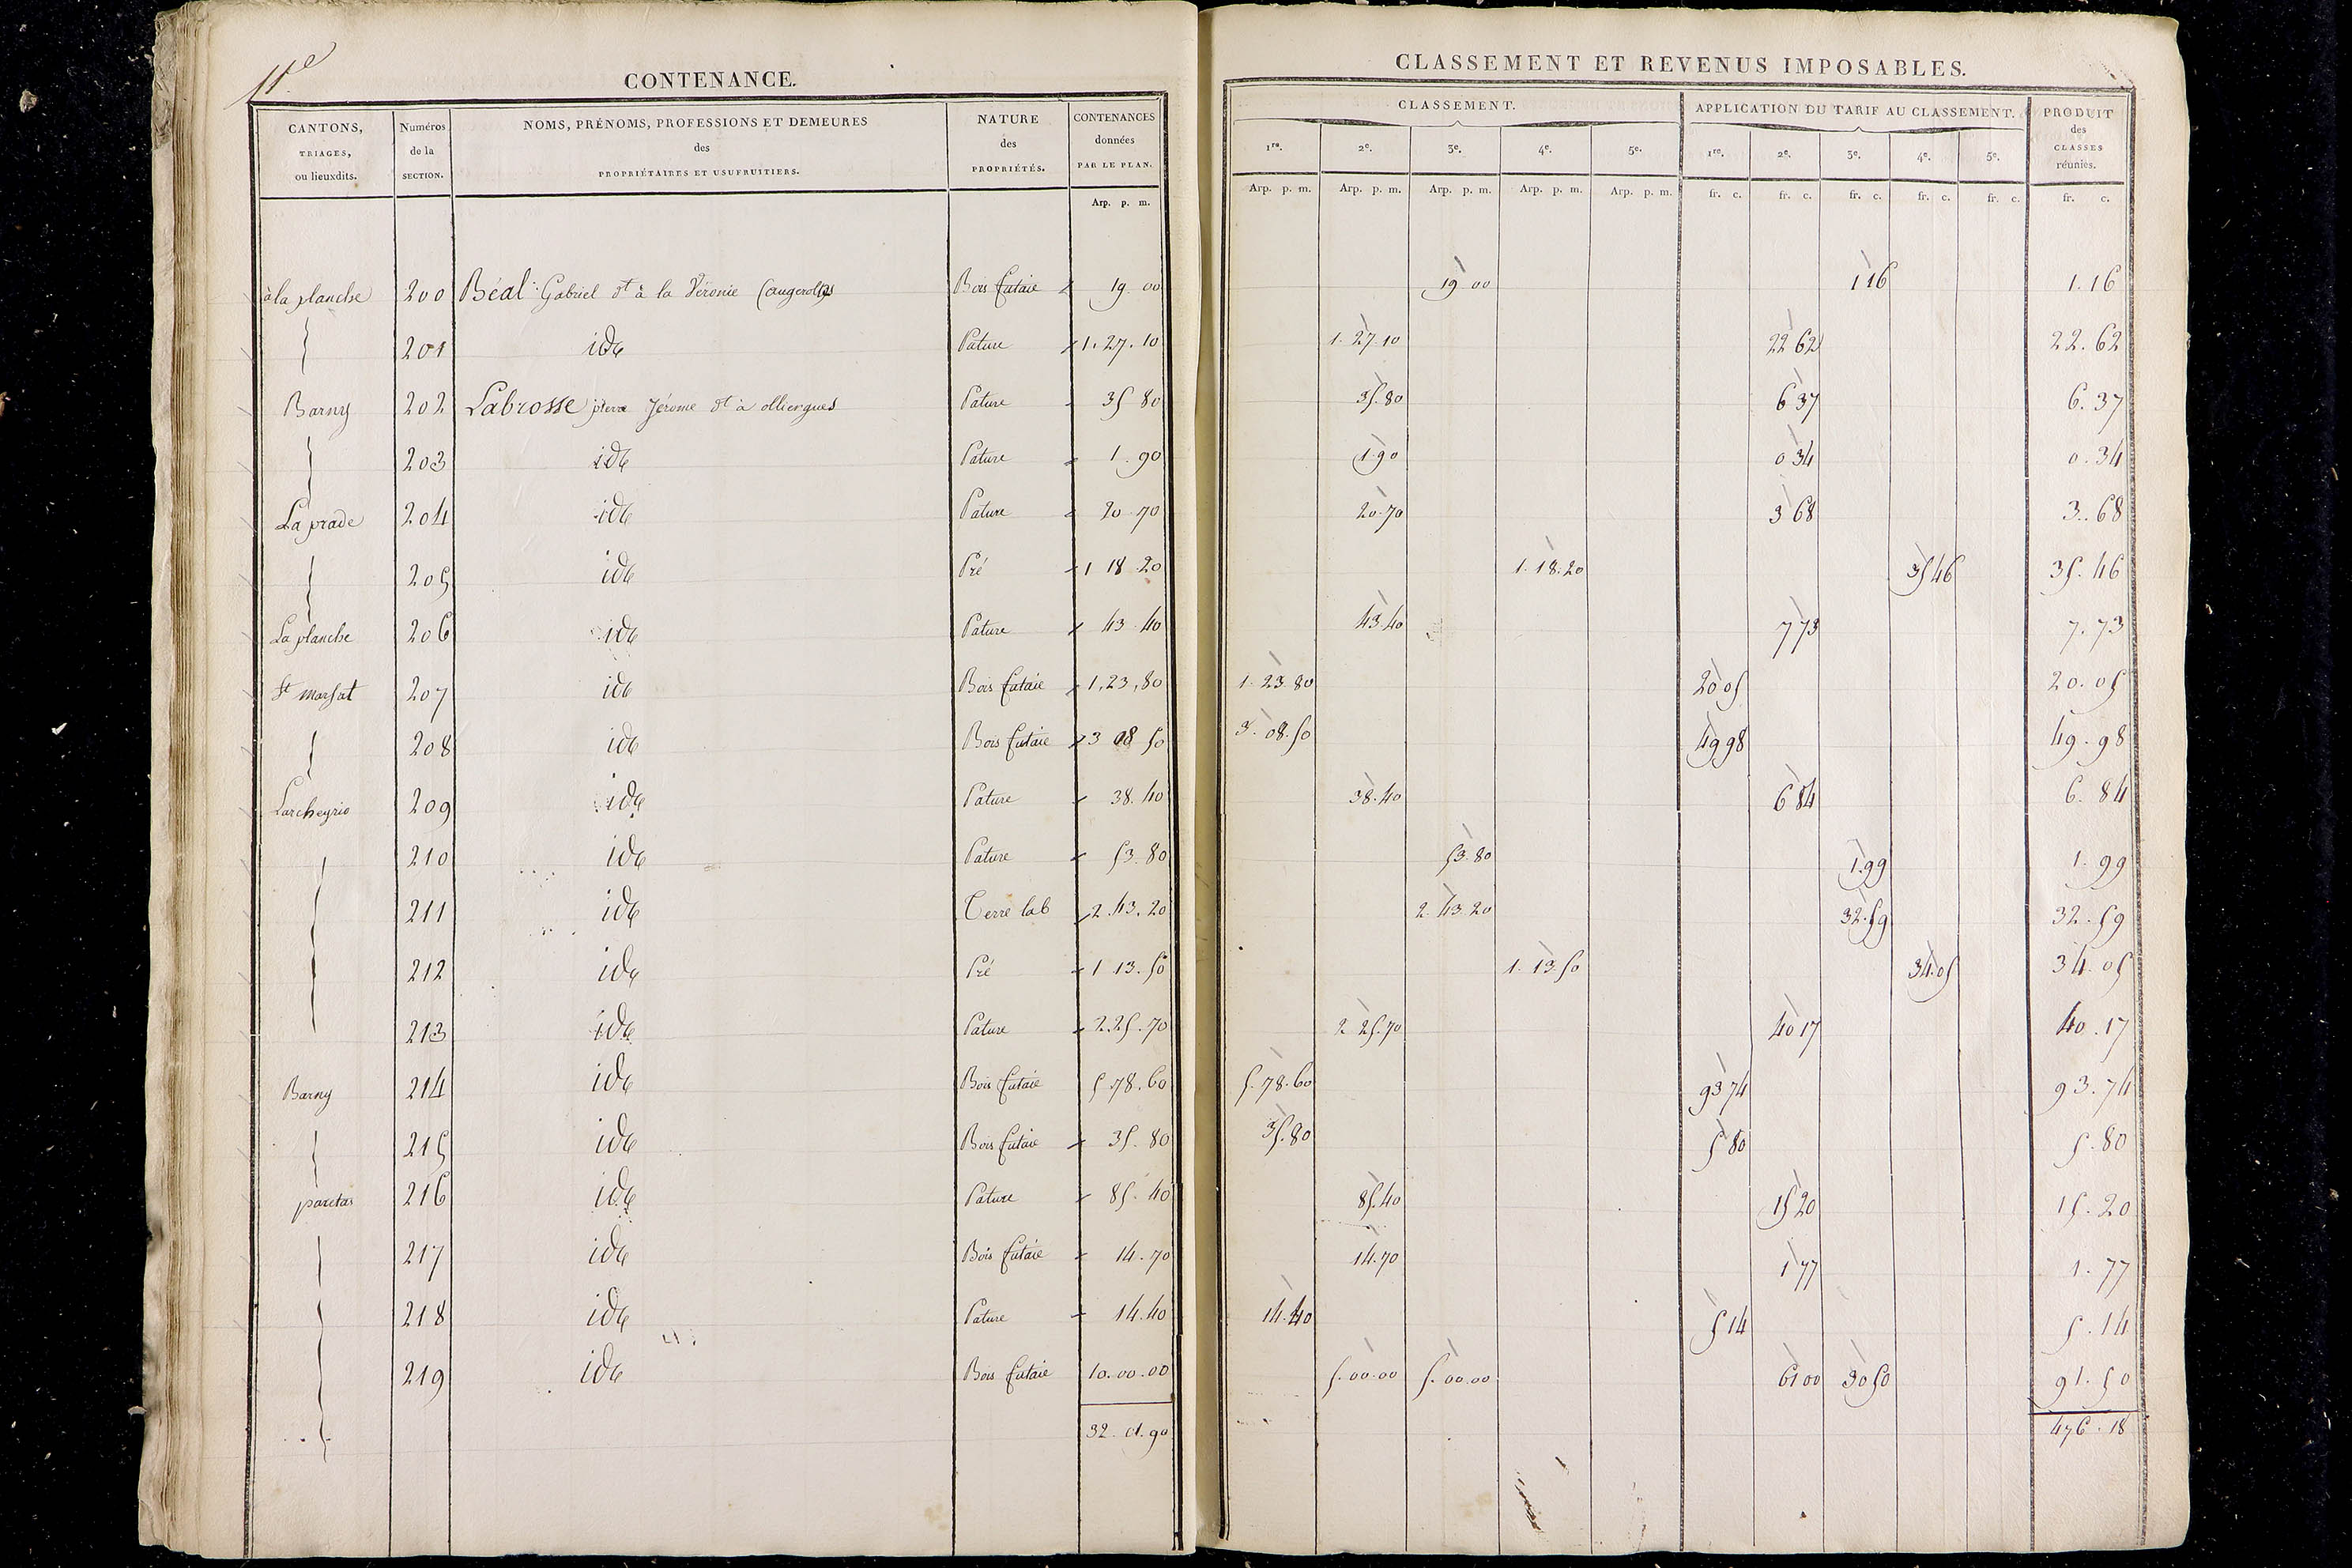 11e
CONTENANCE.
CANTONS, TRIAGES, ou lieuxdits. | Numéros de la SECTION. | NOMS, PRÉNOMS, PROFESSIONS ET DEMEURES des PROPRIÉTAIRES ET USUFRUITIERS. | NATURE des PROPRIÉTÉS. | CONTENANCES données PAR LE PLAN.
Arp. p. m.
à la planche 200 Béal Gabriel dt à la Véronie (augerolles Bois futaie 19 00
201 ide Pature 1.27.10
Barny 202 Labrosse pierre Jérome dt à olliergues Pature 35 80
203 ide Pature 1.90
La prade 204 ide Pature 20 70
205 ide Pré 1 18 20
La planche 206 ide Pature 43.40
St marsat 207 ide Bois futaie 1,23,80
208 ide Bois futaie 3 08 50
Larcheyrio 209 ide Pature 38.40
210 ide Pature 53.80
211 ide Terre lab 2.43.20
212 ide Pré 1 13.50
213 ide Pature 2.25.70
Barny 214 ide Bois futaie 5 78.60
215 ide Bois futaie 35.80
216 ide Pature 85.40
217 ide Bois futaie 14.70
218 ide Pature 14.40
219 ide Bois futaie 10.00.00
32. 01.90
CLASSEMENT ET REVENUS IMPOSABLES.
CLASSEMENT. | APPLICATION DU TARIF AU CLASSEMENT. | PRODUIT des CLASSES réunies.
1re. 2e. 3e. 4e. 5e. 1re. 2e. 3e. 4e. 5e.
Arp. p. m. Arp. p. m. Arp. p. m. Arp. p. m. Arp. p. m. fr. c. fr. c. fr. c. fr. c. fr. c. fr. c.
19 00 1 16 1.16
1.27.10 22 62 22.62
35.80 6 37 6.37
1 90 0 34 0.34
20.70 3 68 3.68
1.18.20 35 46 35.46
43.40 7 73 7.73
1.23.80 20 05 20.05
3.08.50 49 98 49.98
38.40 6 84 6.84
53.80 1.99 1.99
2.43.20 32.59 32.59
1.13.50 34.05 34.05
2 25.70 40 17 40.17
5.78.60 93 74 93.74
35.80 5 80 5.80
85.40 15 20 15.20
14.70 1 77 1.77
14.40 5 14 5.14
5.00.00 5.00.00 61 00 30 50 91.50
476.18